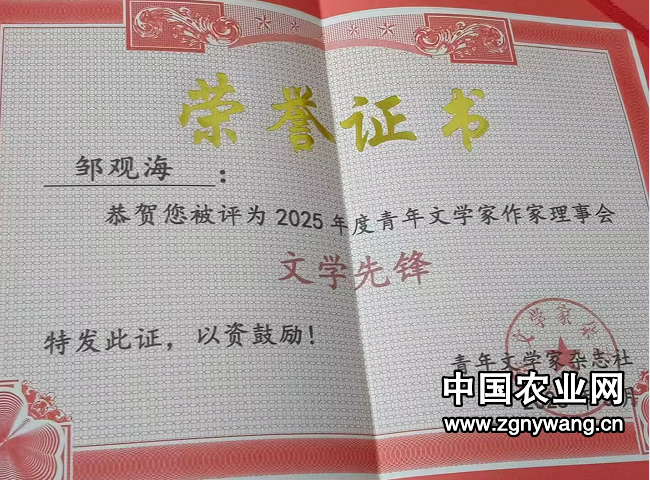 荣誉证书
邹观海：
恭贺您被评为2025年度青年文学家作家理事会
文学先锋
特发此证，以资鼓励！
文学家杂
青年文学家杂志社
中国农业网
www.zgnywang.cn